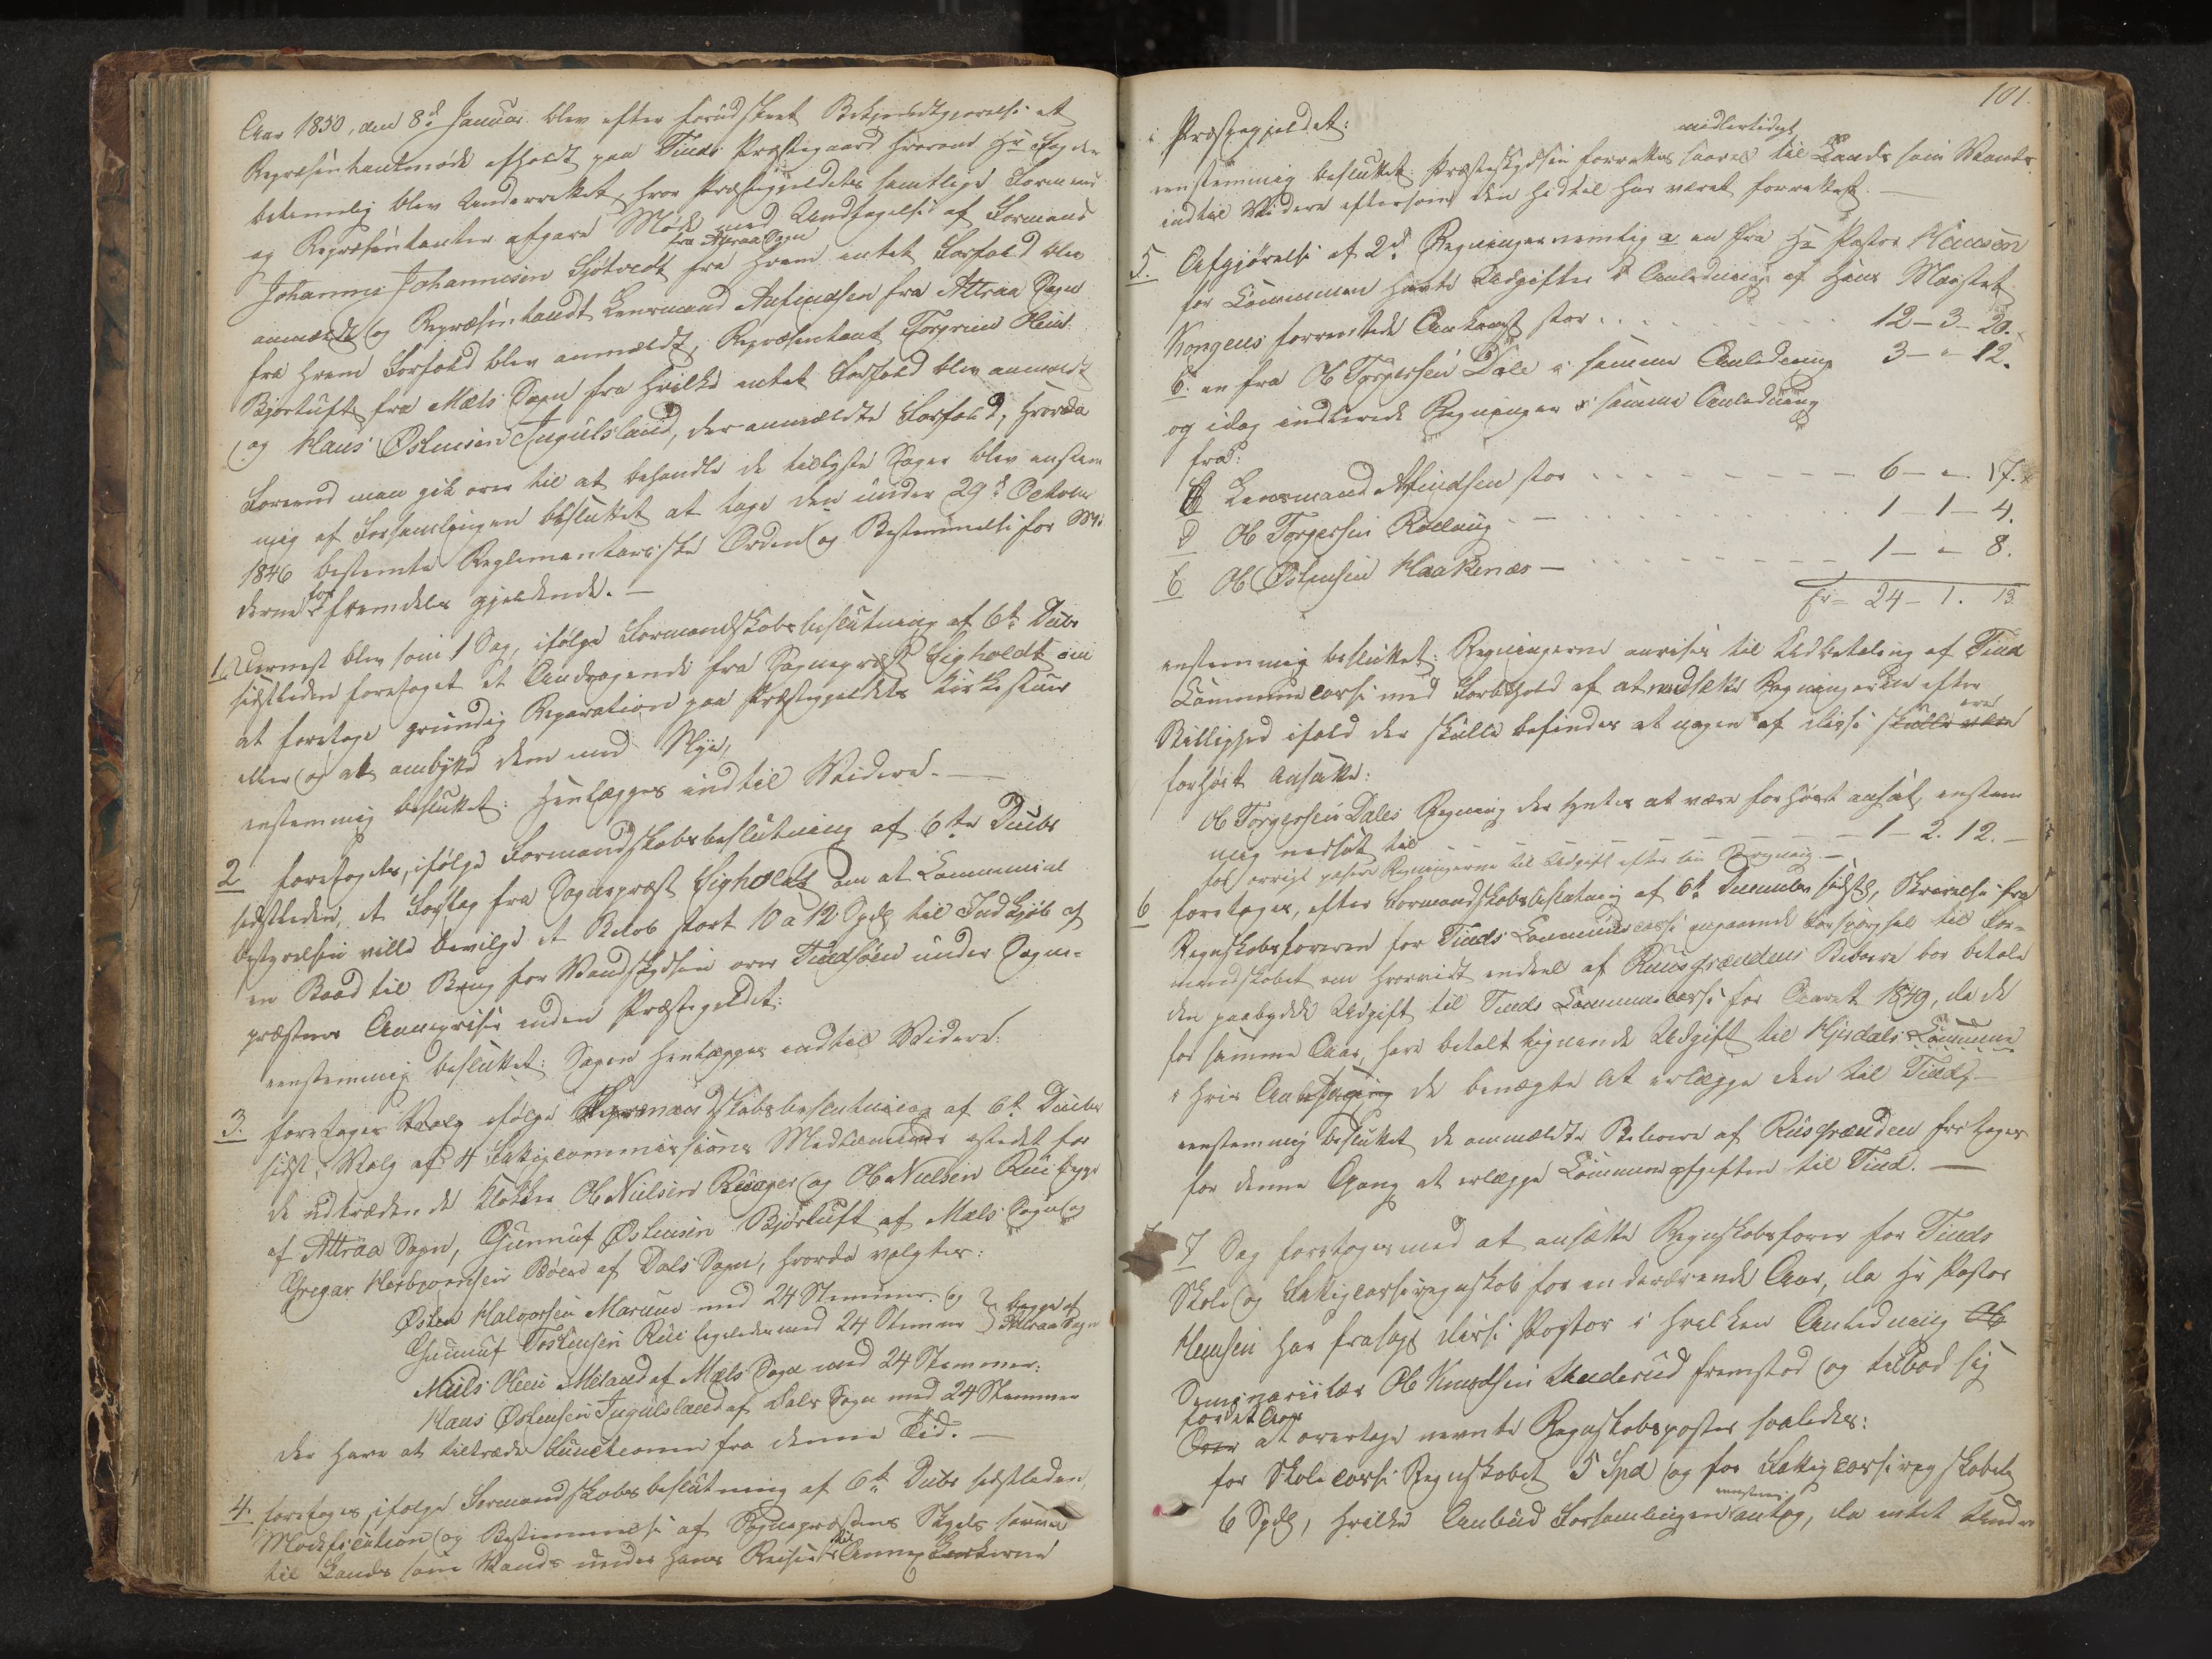 Aar 1850, den 8de Januar blev efter forudskeet Bekjendtgjørelse et
Repræsentantmøde afholdt paa Tinds Præstegaard hvorom Hr Fogden
betimelig blev underrettet, hvor Præstegjeldets samtlige Formænd
og Repræsentanter afgave Møde med Undtagelse af Formand
fra Attraa Sogn
Johannes Johannesen Sjøtvedt fra hvem intet Forfald blev
anmældt og Repræsentandt Lensmand Aslindsen fra Attraa Sogn
fra hvem Forfald blev anmældt, Repræsentant Torgrim
Bjørtuft fra Mæls Sogn fra hvilke intet Forfald blev anmældt
og Hans Østensen Ingulsland, der anmældte Forfald, hvorda
Forend man gik over til at behandle de tillyste Sager blev eenstem
mig af Forsamlingen besluttet at tage den under 29de October
1846 bestemte Reglementariske Orden og Bestemmelse for Mø
derne for fremdeles gjeldende. —
1. Dernest blev som 1 Sag, ifølge Formandskabsbeslutning af 6te Decbr
sidstleden foretaget et Andragende fra Sognepræst Eigholdt om
at foretage grundig Reparation paa Præstegjeldets Kirkestuer
eller og at ombytte dem med Nye,
eenstemmig besluttet: Henlægges indtil Videre. —
2 foretoges, ifølge Formandskabsbeslutning af 6te Decbr
sidstleden, et Forslag fra Sognepræst Eigholdt om at Communal
bestyrelsen ville bevilge et Beløb stort 10 a 12 Spdl til Indkjøb af
en Baad til Brug for Vandskydsen over Tindsøen under Sogne-
præstens Annexreiser inden Præstegjeldet:
eenstemmig besluttet: Sagen henlægges indtil Videre.
3. foretoges Valg ifølge Formandskabsbeslutning af 6te Decbr
sidst. Valg af 4 Fattigcommissions Medlemmer istedet for
de udtrædende Klokker Ole Nielsen Busager og Ole Nielsen Rui begge
af Attraa Sogn, Gunnuf Østensen Bjørtuft af Mæls Sogn og
Gregar Herbrandsen Bøen af Dals Sogn, hvorda valgtes:
Østen Halvorsen Marum med 24 Stemmer og } begge af
Gunnuf Torstensen Rui ligeledes med 24 Stemmer } Attraa Sogn
Niels Olsen Miland af Mæls Sogn med 24 Stemmer.
Hans Østensen Ingulsland af Dals Sogn med 24 Stemmer
der have at tiltræde Functionen fra denne Tid. —
4. foretoges ifølge Formandskabsbeslutning af 6te Decbr sidstleden,
Modification og Bestemmelse af Sognepræstens Skyds saavel
til Lands som Vands under hans Reiser til Annexkirkerne
101.
i Præstegjeldet:
midlertidigt
eenstemmig besluttet: Præsteskydsen forrettes saavel til Lands som Vands
indtil Videre eftersom den hidtil har været forrettet. —
5. Afgjørelse af 2de Regninger nemlig a en fra Hr Pastor Hensen
for Communen havte Udgifter i Anledning af Hans Majestet
Kongens forventede Ankomst stor . . . 12 – 3 – 20.
b. en fra Ole Torgersen Dale i samme Anledning 3 – " – 12.
og idag indleverede Regninger i samme Anledning
fra:
C Lensmand Aslindsen stor . . . 6 – " – 17.
D Ole Torgersen Rollaug . . . 1 – 1 – 4.
E Ole Østensen Haakenæs — . . . 1 – " – 8.
Er = 24 – 1. 13
eenstemmig besluttet: Regningerne anvises til Udbetaling af Tind
Communecasse med Forbehold af at nedsætte Regningerne efter
Billighed ifald det skulde befindes at nogen af disse skulle være ere
forhøit ansatte:
Ole Torgersen Dales Regning der syntes at være for høit ansat, eenstem
mig nedsat til — — — 1 – 2. 12. –
for øvrigt passere Regningerne til Udgift efter sin Paategning. —
6 foretoges, efter Formandskabsbeslutning af 6te December sidstl, Skrivelse fra
Regnskabsføreren for Tinds Communecasse angaaende Forspørgsel til For-
mandskabet om hvorvidt endeel af Ruusgrændens Beboere bør betale
den paabudte Udgift til Tinds Communecasse for Aaret 1849, da de
for samme Aar, have betalt lignende Udgift til Hjerdals Commune
i hvis Anledning de benægte at erlægge den til Tind,
eenstemmig besluttet de anmældte Beboere af Rusgrænden fritages
for denne Gang at erlægge Communeafgiften til Tind. —
7 Sag foretoges med at ansætte Regnskabsfører for Tinds
Skole og Fattigcasseregnskab for en derværende Aar, da Hr Pastor
Hensen har frasagt disse Poster i hvilken Anledning Ole
Seminariilær Ole Knudsen Underud fremstod og tilbød sig
for det Aar
Over at overtage nevnte Regnskabsposter saaledes:
for Skolecasse Regnskabet 5 Spd og for Fattigcasseregnskabet
eenstem
6 Spdl, hvilke Anbud Forsamlingen antog, da intet Andet